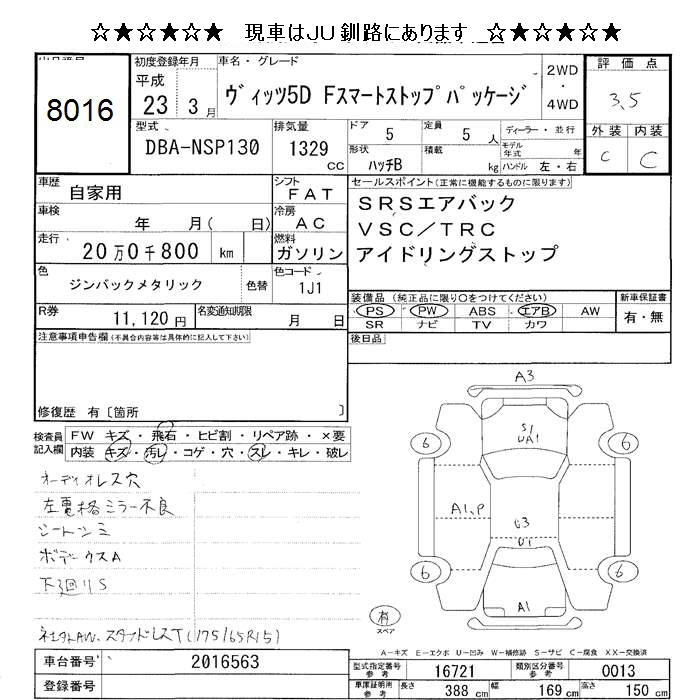 ☆★☆★☆★ 現車はJU釧路にあります ☆★☆★☆★
8016
初度登録年月
平成
23 3月
車名・グレード
ヴィッツ5D Fスマートストップパッケージ
2WD
・
4WD
評価点
3.5
外装 内装
C C
型式
DBA-NSP130
排気量
1329
CC
ドア
5
定員
5 人
ディーラー・並行
形状
ハッチB
積載
kg
モデル年式
年
ハンドル 左・右
車歴
自家用
シフト
FAT
車検
年 月( 日)
冷房
AC
走行
20万0千800 km
燃料
ガソリン
色
ジンバックメタリック
色替
色コード
1J1
R券
11,120円
名変通知期限
月 日
セールスポイント(正常に機能するものに限ります)
SRSエアバック
VSC/TRC
アイドリングストップ
装備品 (純正品に限り○をつけてください)
PS PW ABS エアB AW
SR ナビ TV カワ
新車保証書
有・無
後日品
注意事項申告欄(不具合内容等は具体的に記入して下さい)
修復歴 有〔箇所 〕
検査員記入欄
FW キズ・飛石・ヒビ割・リペア跡・×要
内装 キズ・汚レ・コゲ・穴・スレ・キレ・破レ
オーディオレス穴
左電格ミラー不良
シートシミ
ボデーウスA
下廻りS
社外AW、スタッドレスT(175/65R15)
A3
S1
UA1
6 6
A1、P
G3
U1
6 6
A1
有
スペア
A-キズ E-エクボ U-凹み W-補修跡 S-サビ C-腐食 XX-交換済
車台番号
2016563
登録番号
型式指定番号
参考
16721
類別区分番号
参考
0013
車庫証明用
参考
長さ
388 cm
幅
169 cm
高さ
150 cm